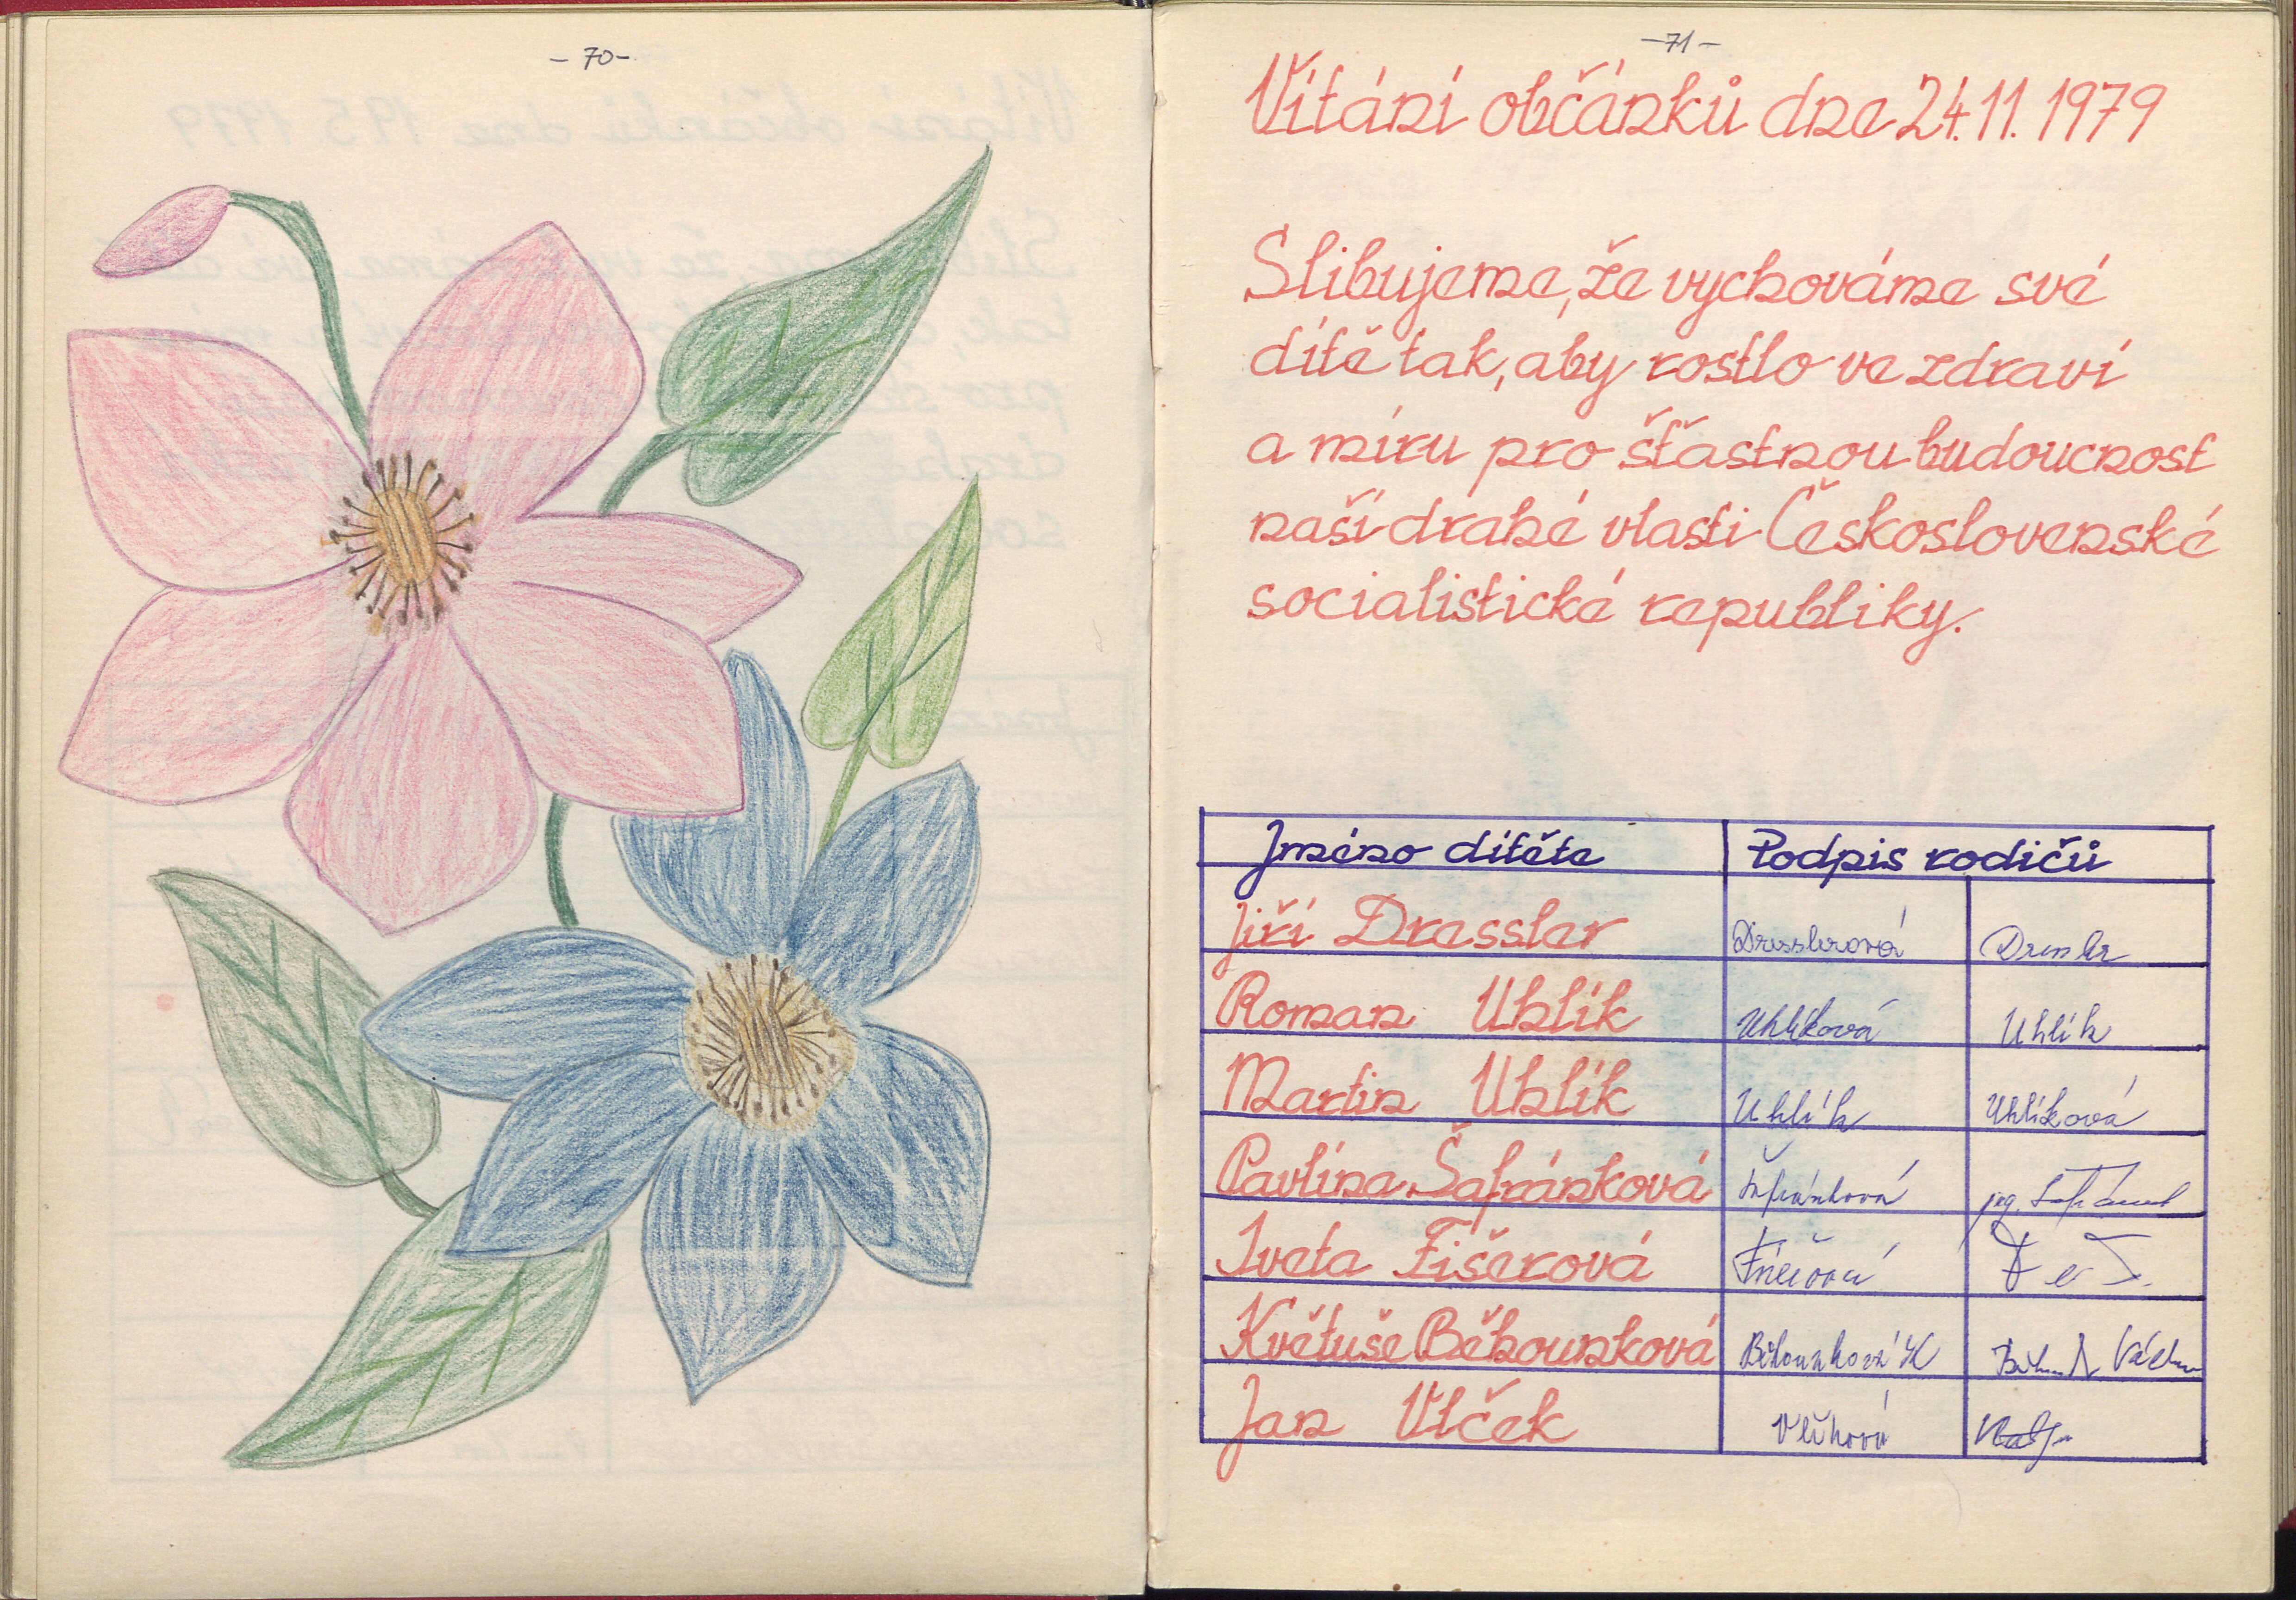 - 70 -
- 71 -
Vítání občánků dne 24. 11. 1979
Slibujeme, že vychováme své
dítě tak, aby rostlo ve zdraví
a míru pro šťastnou budoucnost
naší drahé vlasti Československé
socialistické republiky.
Jméno dítěte Podpis rodičů
Jiří Dressler Dresslerová Dressler
Roman Uhlík Uhlíková Uhlík
Martin Uhlík Uhlík Uhlíková
Pavlína Šafránková Šafránková ing. Šafránek
Iveta Fišerová Fišerová
Květuše Běhounková Běhounková K Václav
Jan Vlček Vlčková